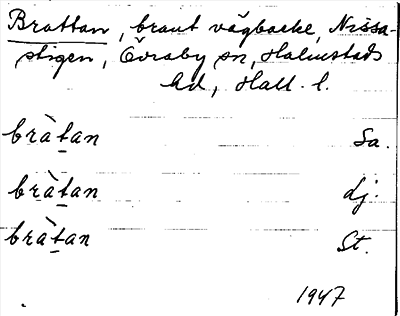 Brattan, brant vägbacke, Nissa-
stigen, Övraby sn, Halmstads
hd, Hall. l.
bràtan Sa.
bràtan dj.
bràtan St.
1947